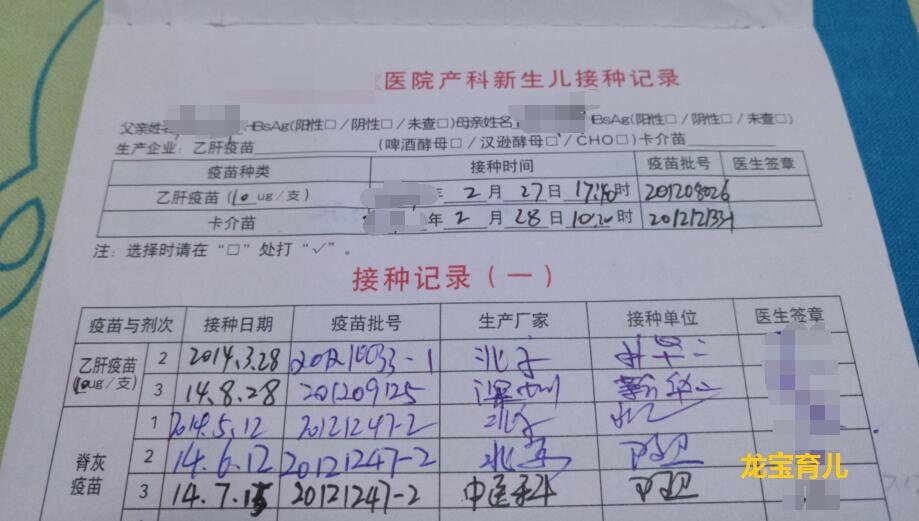 医院产科新生儿接种记录
父亲姓名 HBsAg(阳性□/阴性□/未查□)母亲姓名 HBsAg(阳性□/阴性□/未查□)
生产企业:乙肝疫苗 (啤酒酵母□/汉逊酵母□/CHO□)卡介苗
疫苗种类 接种时间 疫苗批号 医生签章
乙肝疫苗(10ug/支) 年 2 月 27 日 时 201208026
卡介苗 年 2 月 28 日 10:20 时
注:选择时请在“□”处打“√”。
接种记录(一)
疫苗与剂次 接种日期 疫苗批号 生产厂家 接种单位 医生签章
乙肝疫苗 (10ug/支)
2 2014.3.28 北京
3 14.8.28 201209125 深圳
脊灰疫苗
1 2014.5.12 20121247-2 北京
2 14.6.12 20121247-2 北京
3 14.7.15 20121247-2 中医科
龙宝育儿